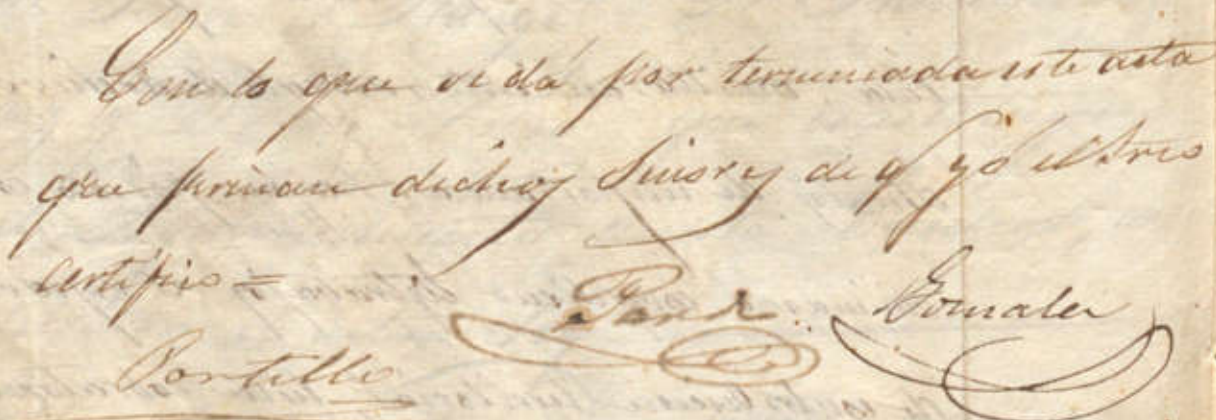 Con lo que se dá por terminada este acta
que firman dichos Sinores de q yó el Srio
certifico =
Gonzalez
Portillo